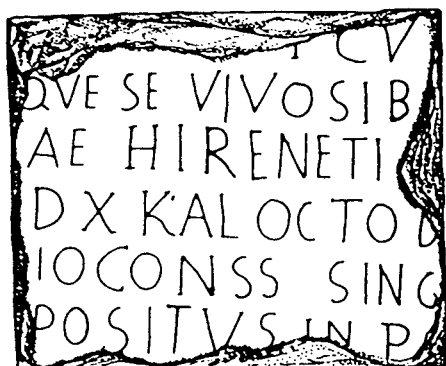 I C V
QVE SE VIVO SIB
AE HIRENETI
D X K'AL OCTO
IOCONSS SING
POSITVS IN P